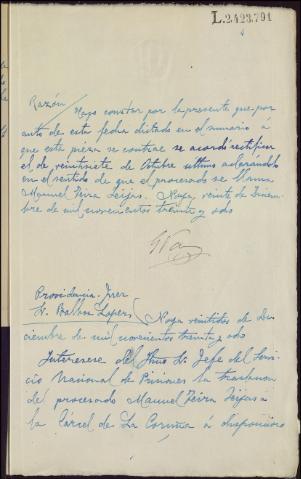 L.2.423.791
Razón/ Hago constar por la presente que por
auto de esta fecha dictado en el sumario á
que esta pieza se contrae se acordó rectificar
el de veintisiete de Octubre último aclarándolo
en el sentido de que el procesado se llama
Manuel Feira Seijas. Noya, veinte de Diciem-
bre de mil novecientos treinta y dos
Providencia-Juez
Sr. Balboa López/ Noya veintidos de Di-
ciembre de mil novecientos treinta y dos
Interésese del Iltmo Sr. Jefe del Servi-
cio Nacional de Prisiones la traslacion
del procesado Manuel Feira Seijas á
la Cárcel de La Coruña á disposición